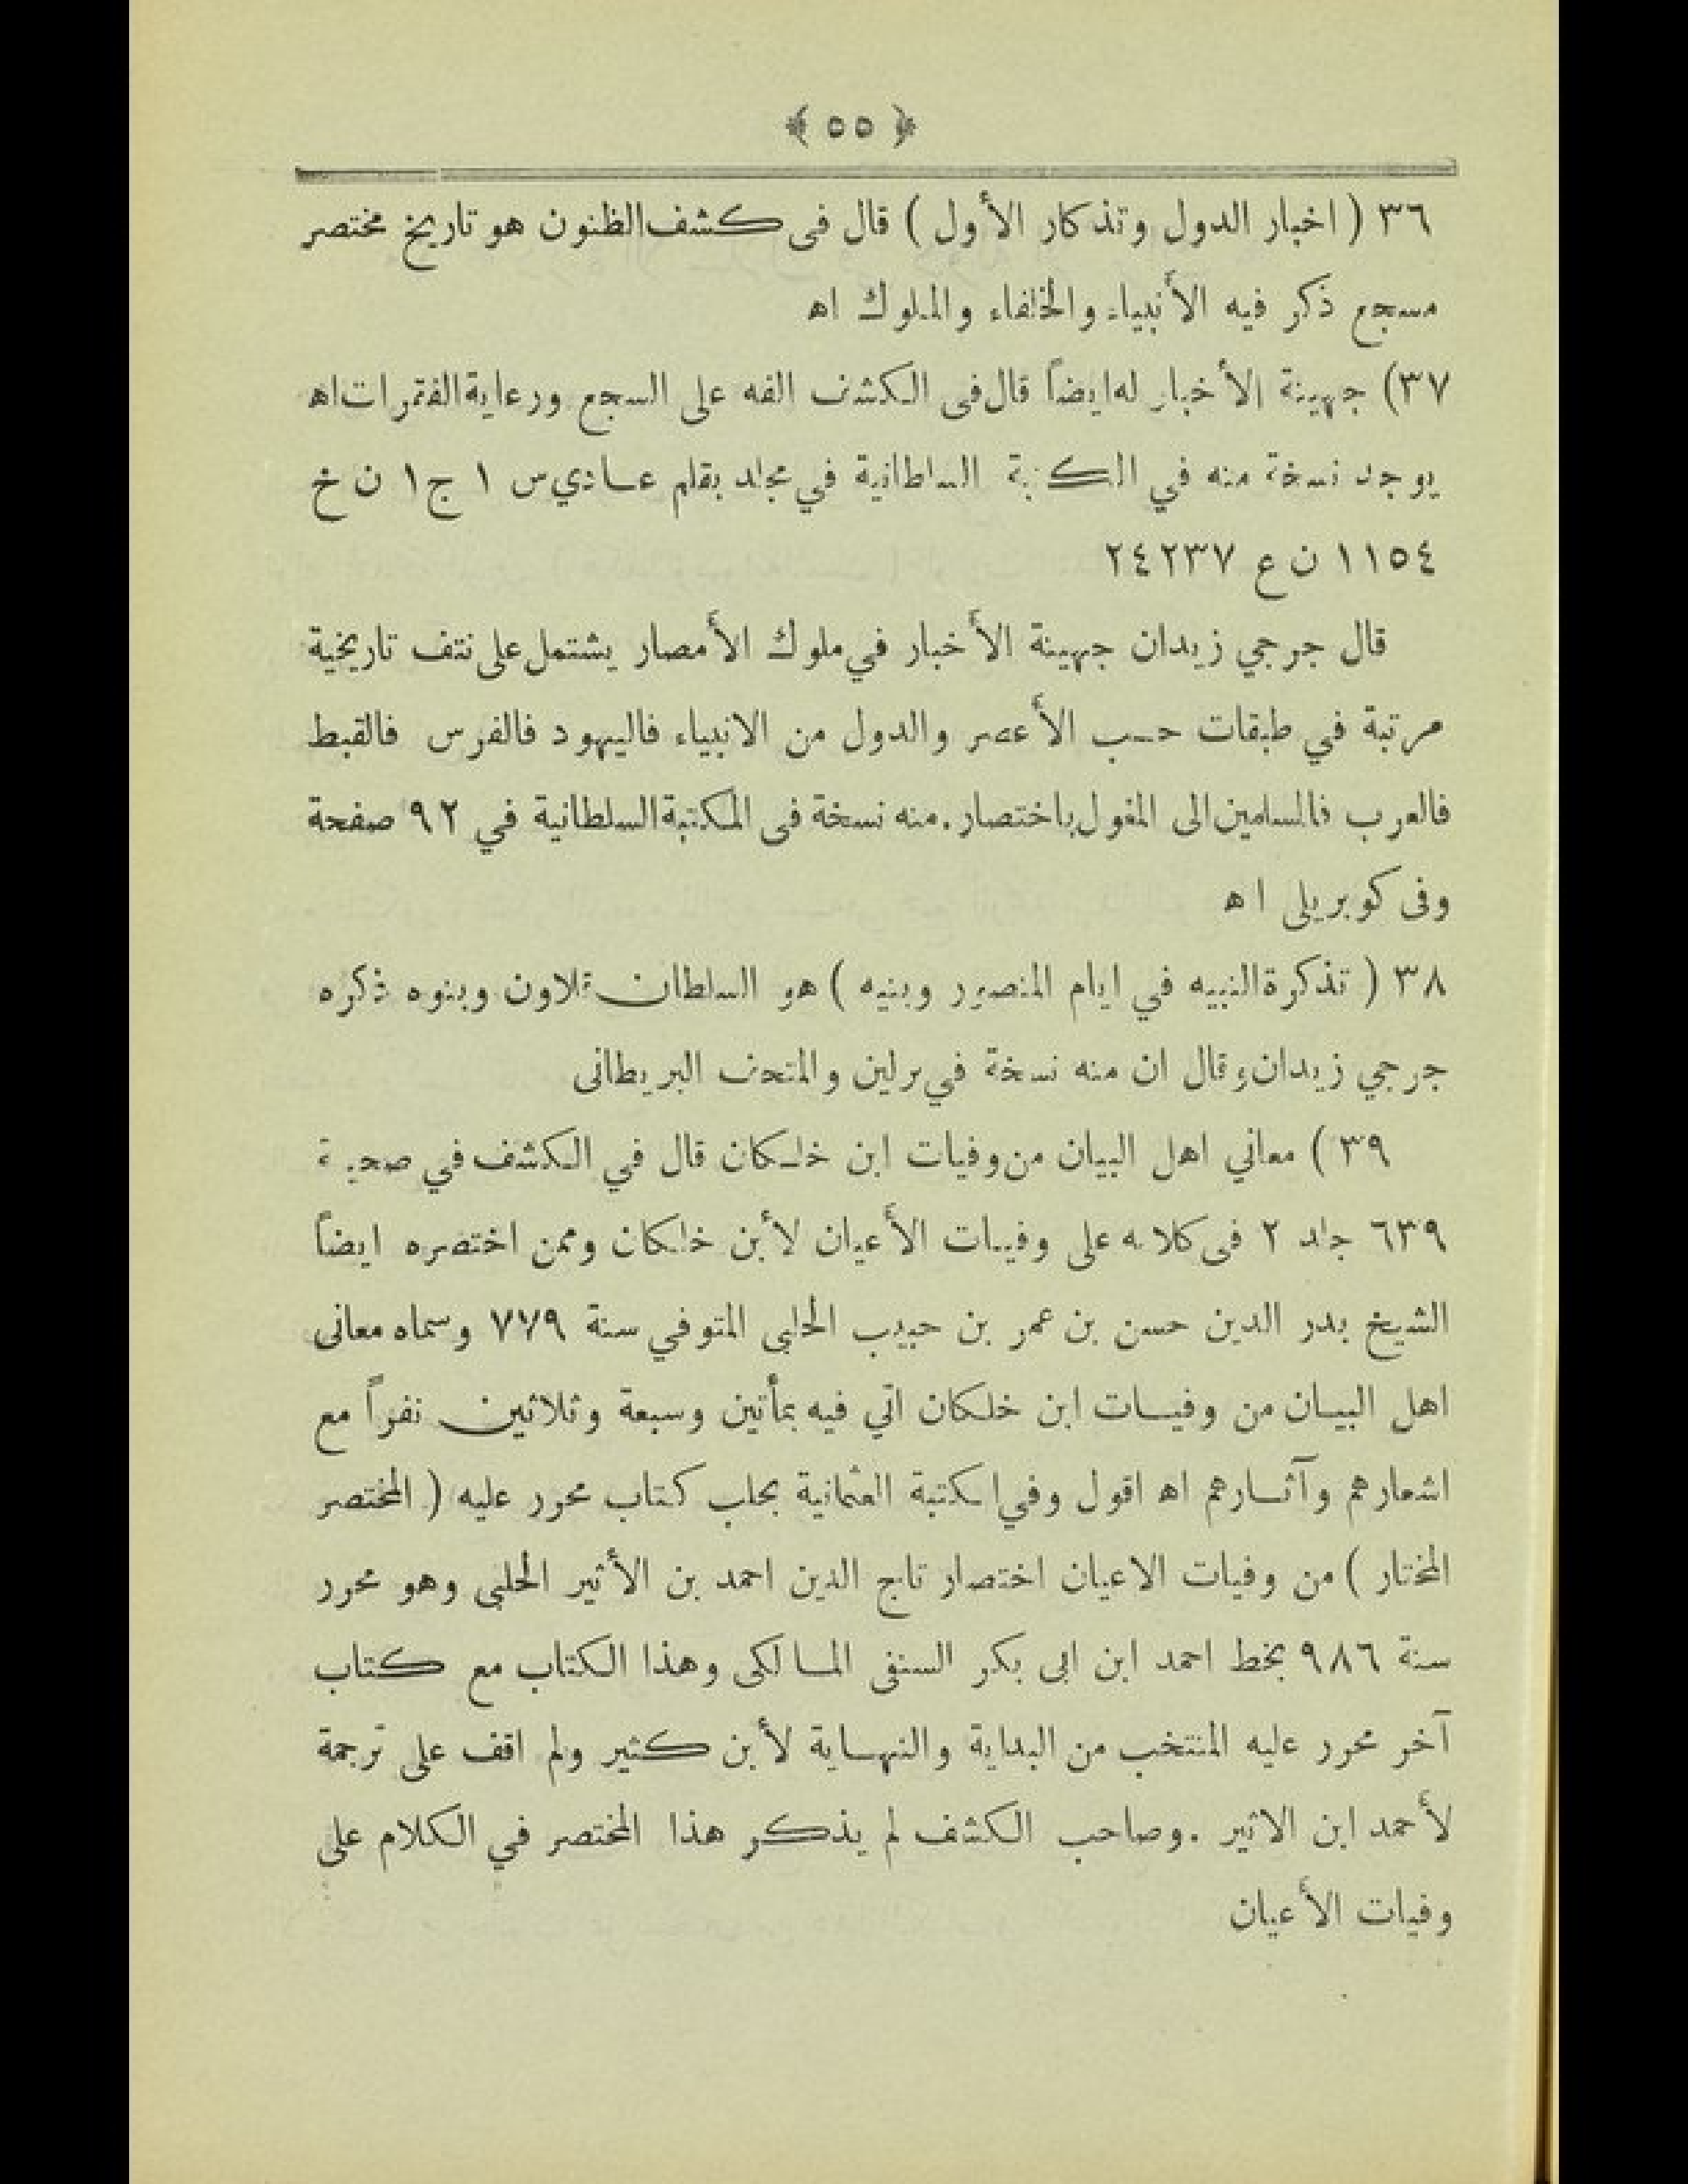 ﴿ ٥٥ ﴾
٣٦ ( اخبار الدول وتذكار الأول ) قال فى كشف الظنون هو تاريخ مختصر
مسجع ذكر فيه الأنبياء والخلفاء والملوك اه
٣٧) جهينة الأخبار له ايضاً قال فى الكشف الفه على السجع ورعاية الفقرات اه
يوجد نسخة منه في المكتبة السلطانية في مجلد بقلم عادي س ١ ج ١ ن خ
١١٥٤ ن ع ٢٤٢٣٧
قال جرجي زيدان جهينة الأخبار في ملوك الأمصار يشتمل على نتف تاريخية
مرتبة في طبقات حسب الأعصر والدول من الانبياء فاليهود فالفرس فالقبط
فالعرب فالمسلمين الى المغول باختصار . منه نسخة فى المكتبة السلطانية في ٩٢ صفحة
وفى كوبريلى اه
٣٨ ( تذكرة النبيه في ايام المنصور وبنيه ) هو السلطان قلاون وبنوه ذكره
جرجي زيدان وقال ان منه نسخة في برلين والمتحف البريطانى
٣٩ ) معاني اهل البيان من وفيات ابن خلكان قال في الكشف في صحيفة
٦٣٩ جلد ٢ فى كلامه على وفيات الأعيان لأبن خلكان وممن اختصره ايضاً
الشيخ بدر الدين حسن بن عمر بن حبيب الحلبى المتوفي سنة ٧٧٩ وسماه معانى
اهل البيان من وفيات ابن خلكان اتي فيه بمأتين وسبعة وثلاثين نفراً مع
اشعارهم وآثارهم اه اقول وفي المكتبة العثمانية بحلب كتاب محرر عليه ( المختصر
المختار ) من وفيات الاعيان اختصار تاج الدين احمد بن الأثير الحلبى وهو محرر
سنة ٩٨٦ بخط احمد ابن ابى بكر السنفى المالكى وهذا الكتاب مع كتاب
آخر محرر عليه المنتخب من البداية والنهاية لأبن كثير ولم اقف على ترجمة
لأحمد ابن الاثير . وصاحب الكشف لم يذكر هذا المختصر في الكلام على
وفيات الأعيان